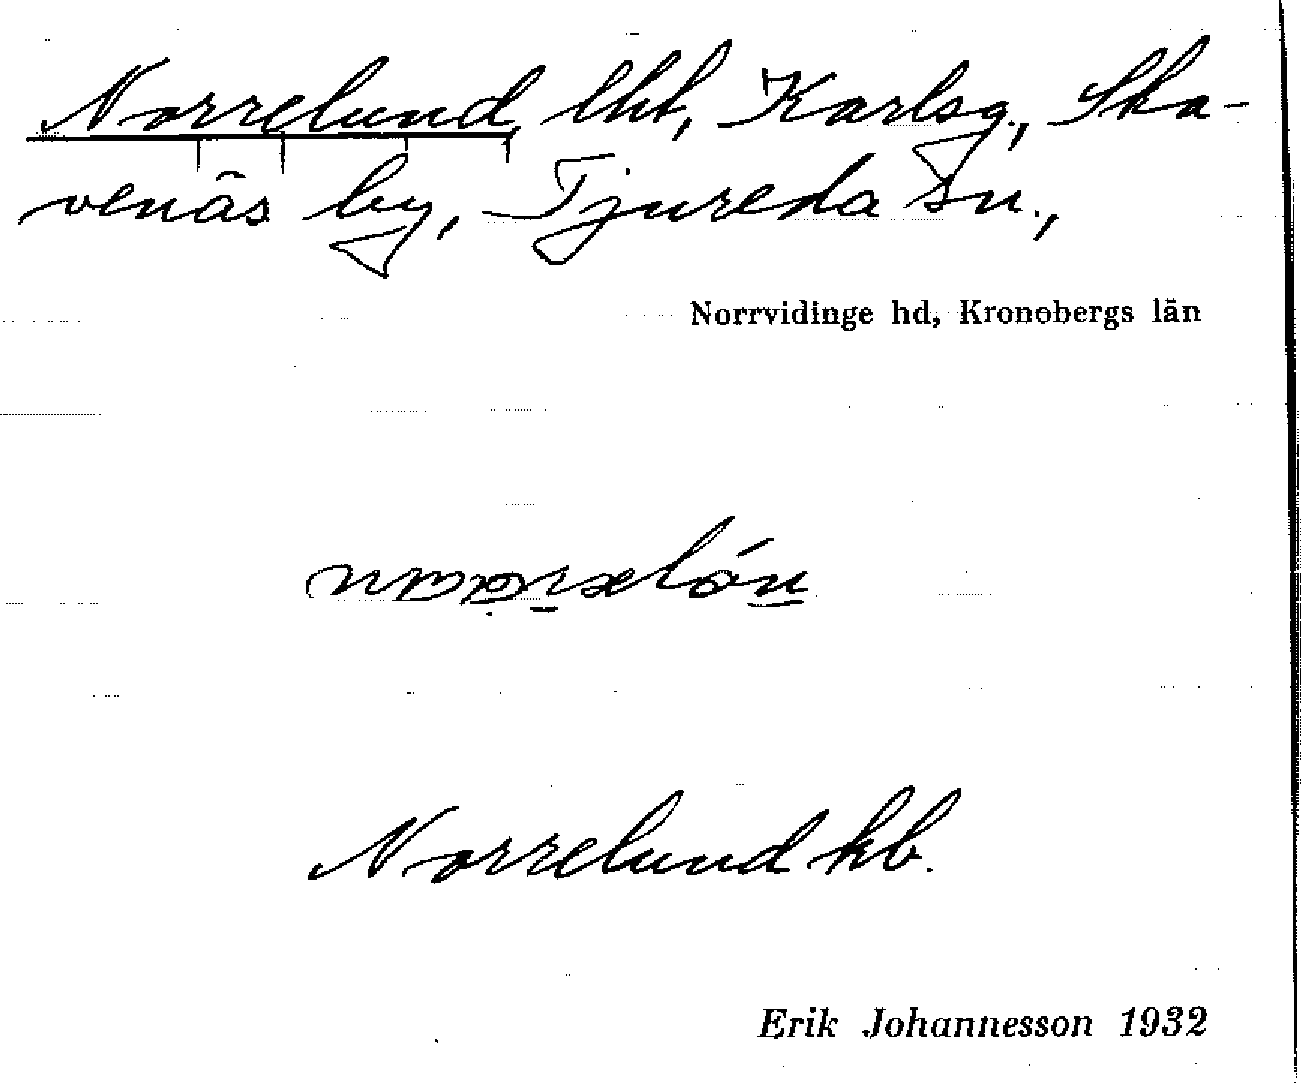 Norrelund, lht, Karlsg., Ska-
venäs by, Tjureda sn.,
Norrvidinge hd, Kronobergs län
Norrelund kb.
Erik Johannesson 1932